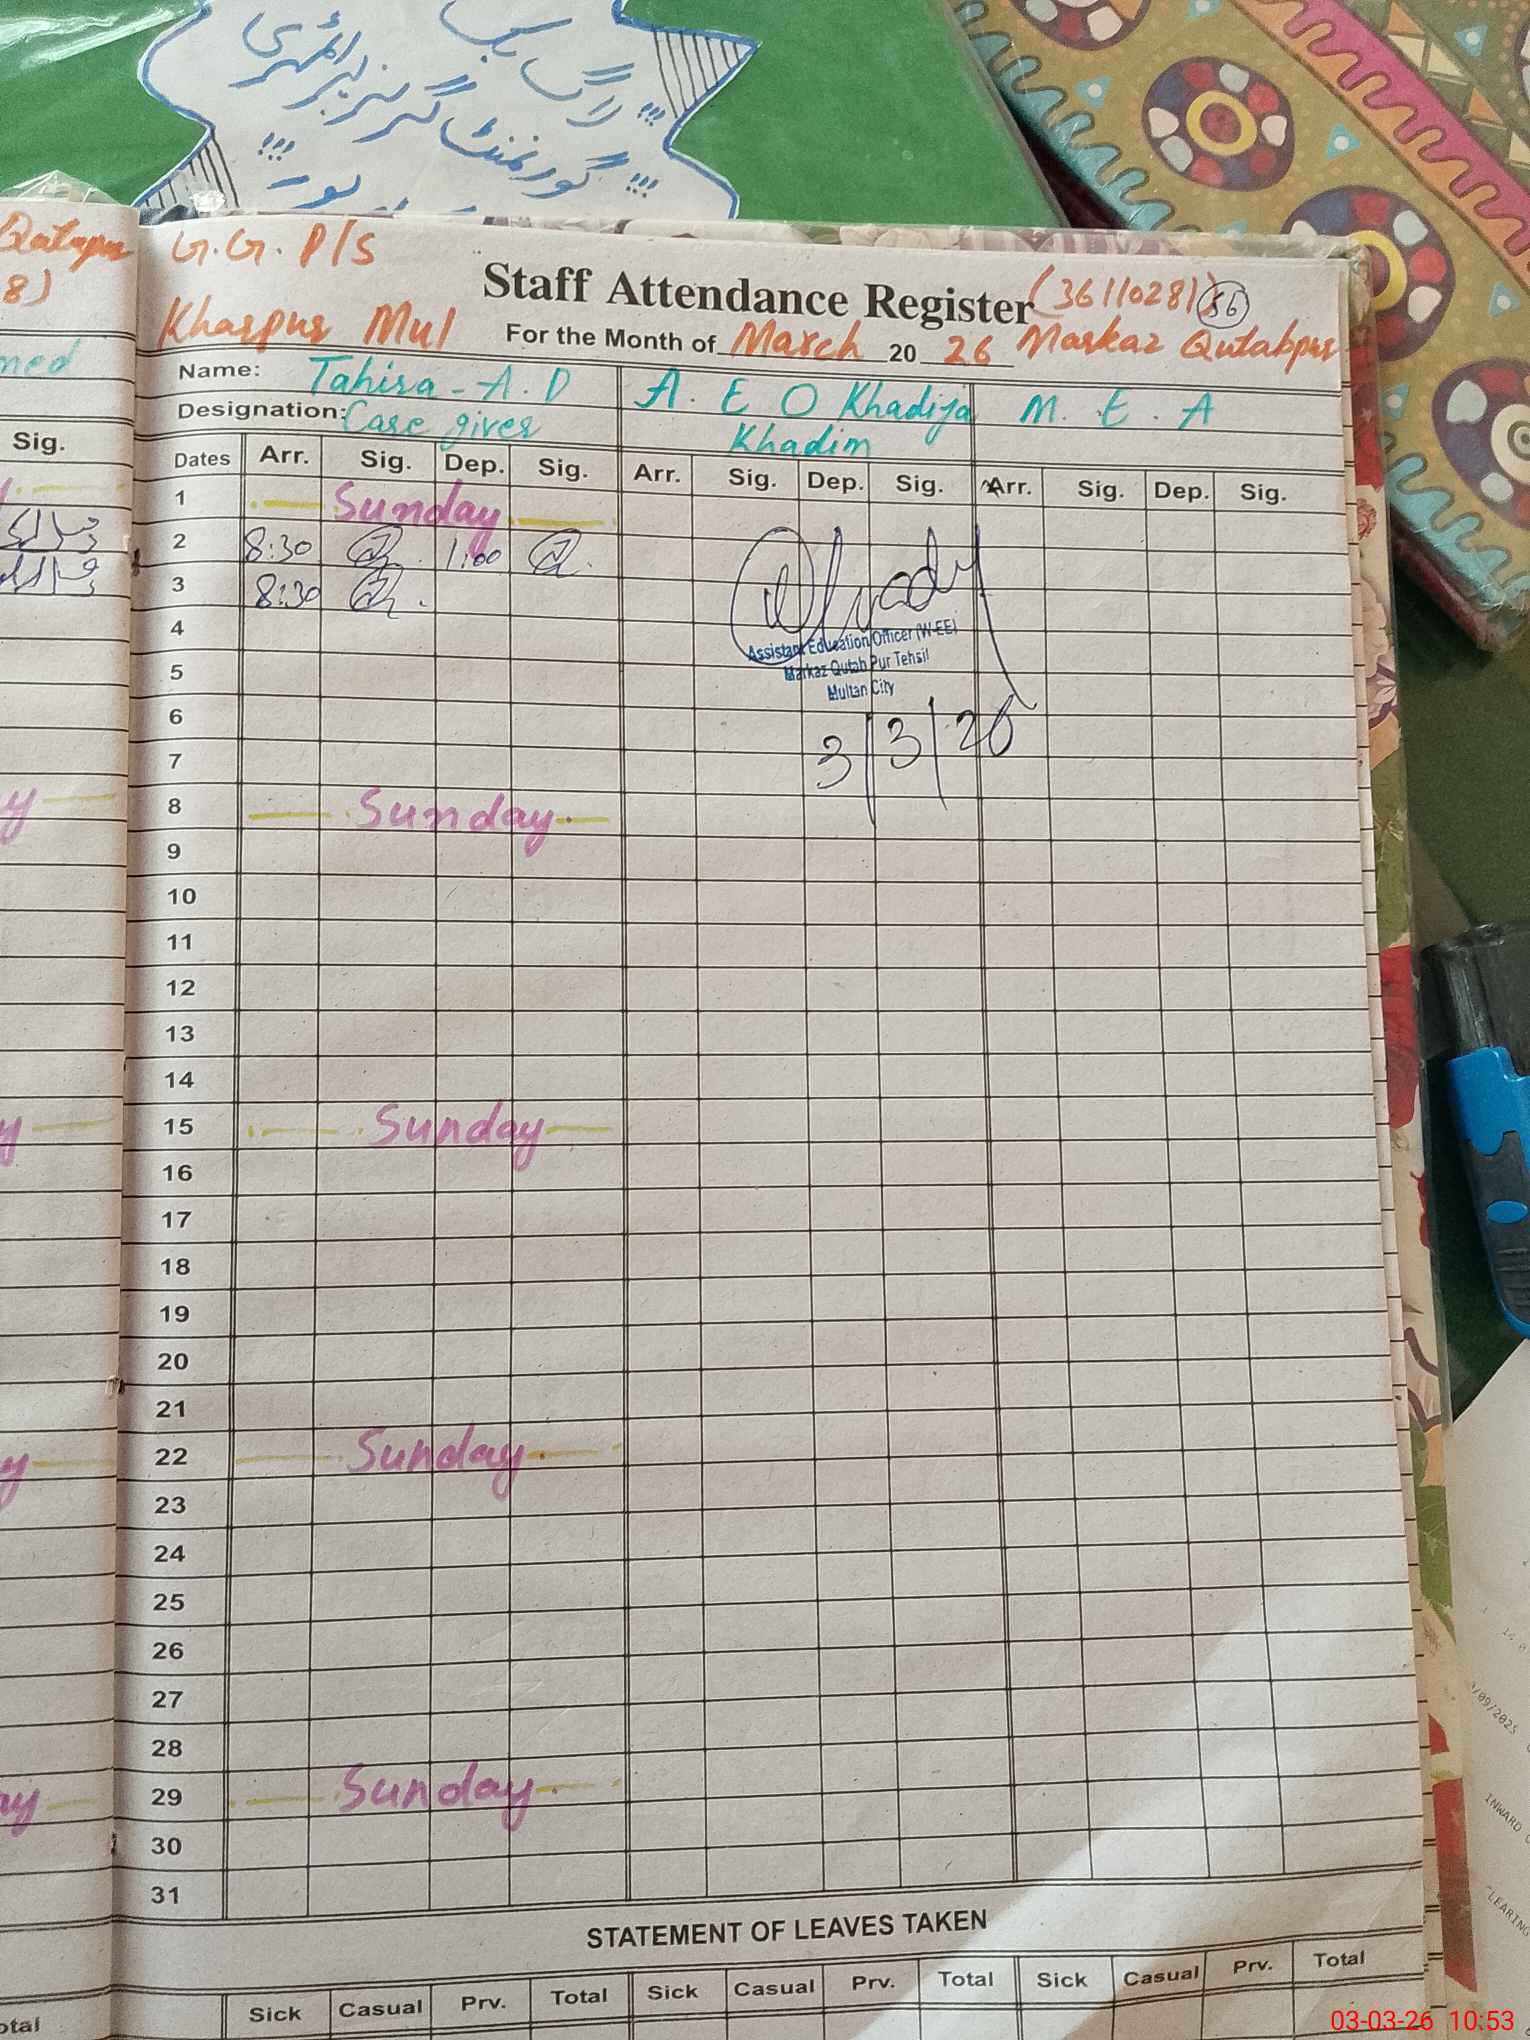 "" لاگ بک
"" گورنمنٹ گرلز پرائمری
پور ـ ""
Qutabpur
8)
med
Sig.
G.G. P/S
Staff Attendance Register (36110281) 56
Kharpur Mul For the Month of March 2026 Markaz Qutabpur
Name: Tahira - A.D A. E O Khadija M. E. A
Designation: Care giver Khadim
Dates Arr. Sig. Dep. Sig. Arr. Sig. Dep. Sig. Arr. Sig. Dep. Sig.
1 Sunday
2 8:30 1:00
3 8:30
4
Assistant Education Officer (W-EE)
5
Markaz Qutab Pur Tehsil
Multan City
6
3/3/26
7
8 Sunday
9
10
11
12
13
14
15 Sunday
16
17
18
19
20
21
22 Sunday
23
24
25
26
27
28
29 Sunday
30
31
STATEMENT OF LEAVES TAKEN
Sick Casual Prv. Total Sick Casual Prv. Total Sick Casual Prv. Total
otal
/09/2025
INWARD
CLEARING
03-03-26 10:53